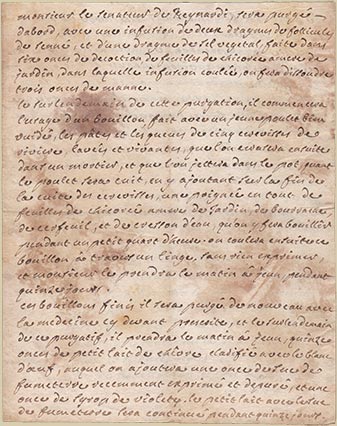 monsieur le senateur de Reynardi, sera purgé
dabord, avec une infusion de deux dragmes de follicules
de senné, et d'une dragme de sel vegetal, faite dans
six onces de decoction de feuilles de chicorée amere de
jardin, dans laquelle infusion coulée, on fera dissoudre
trois onces de manne.
le surlendemain de cette purgation, il commencera
l'usage d'un bouillon fait avec un jeune poulet bien
vuidé, les pates et les queues de cinq ecrevisses de
riviere, lavées et vivantes, que l'on ecrasera ensuite
dans un mortier, et que l'on jettera dans le pot, quant
le poulet sera cuit, en y ajoutant sur la fin de
la cuite des ecrevisses, une poignée en tout de
feuilles de chicorée amere de jardin, de bourrache,
de cerfeuil, et de cresson d'eau, qu'on y fera bouillir
pendant un petit quart d'heure. on coulera ensuite ce
bouillon à travers un linge, sans rien exprimer,
et monsieur le prendra le matin à jeun, pendant
quinze jours.
ces bouillons finis, il sera purgé de nouveau avec
la medecine cy devant prescrite, et le surlendemain
de ce purgatif, il prendra le matin à jeun, quinze
onces de petit lait de chevre clarifié avec le blanc
d'œuf, auquel on ajoutera une once de suc de
fumeterre recemment exprimé et depuré, et une
once de syrop de violete. le petit lait avec le suc
de fumeterre sera continué pendant quinze jours.